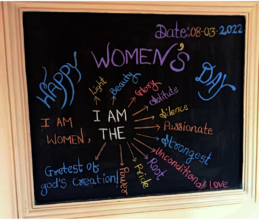 Date:08-03-2022
HAPPY WOMEN'S DAY
I AM WOMEN,
I AM THE
Light
Beauty
Glory
Silence
Passionate
Strongest
Unconditional LOVE
Root
Pride
Power
Gretest of
god's Creation